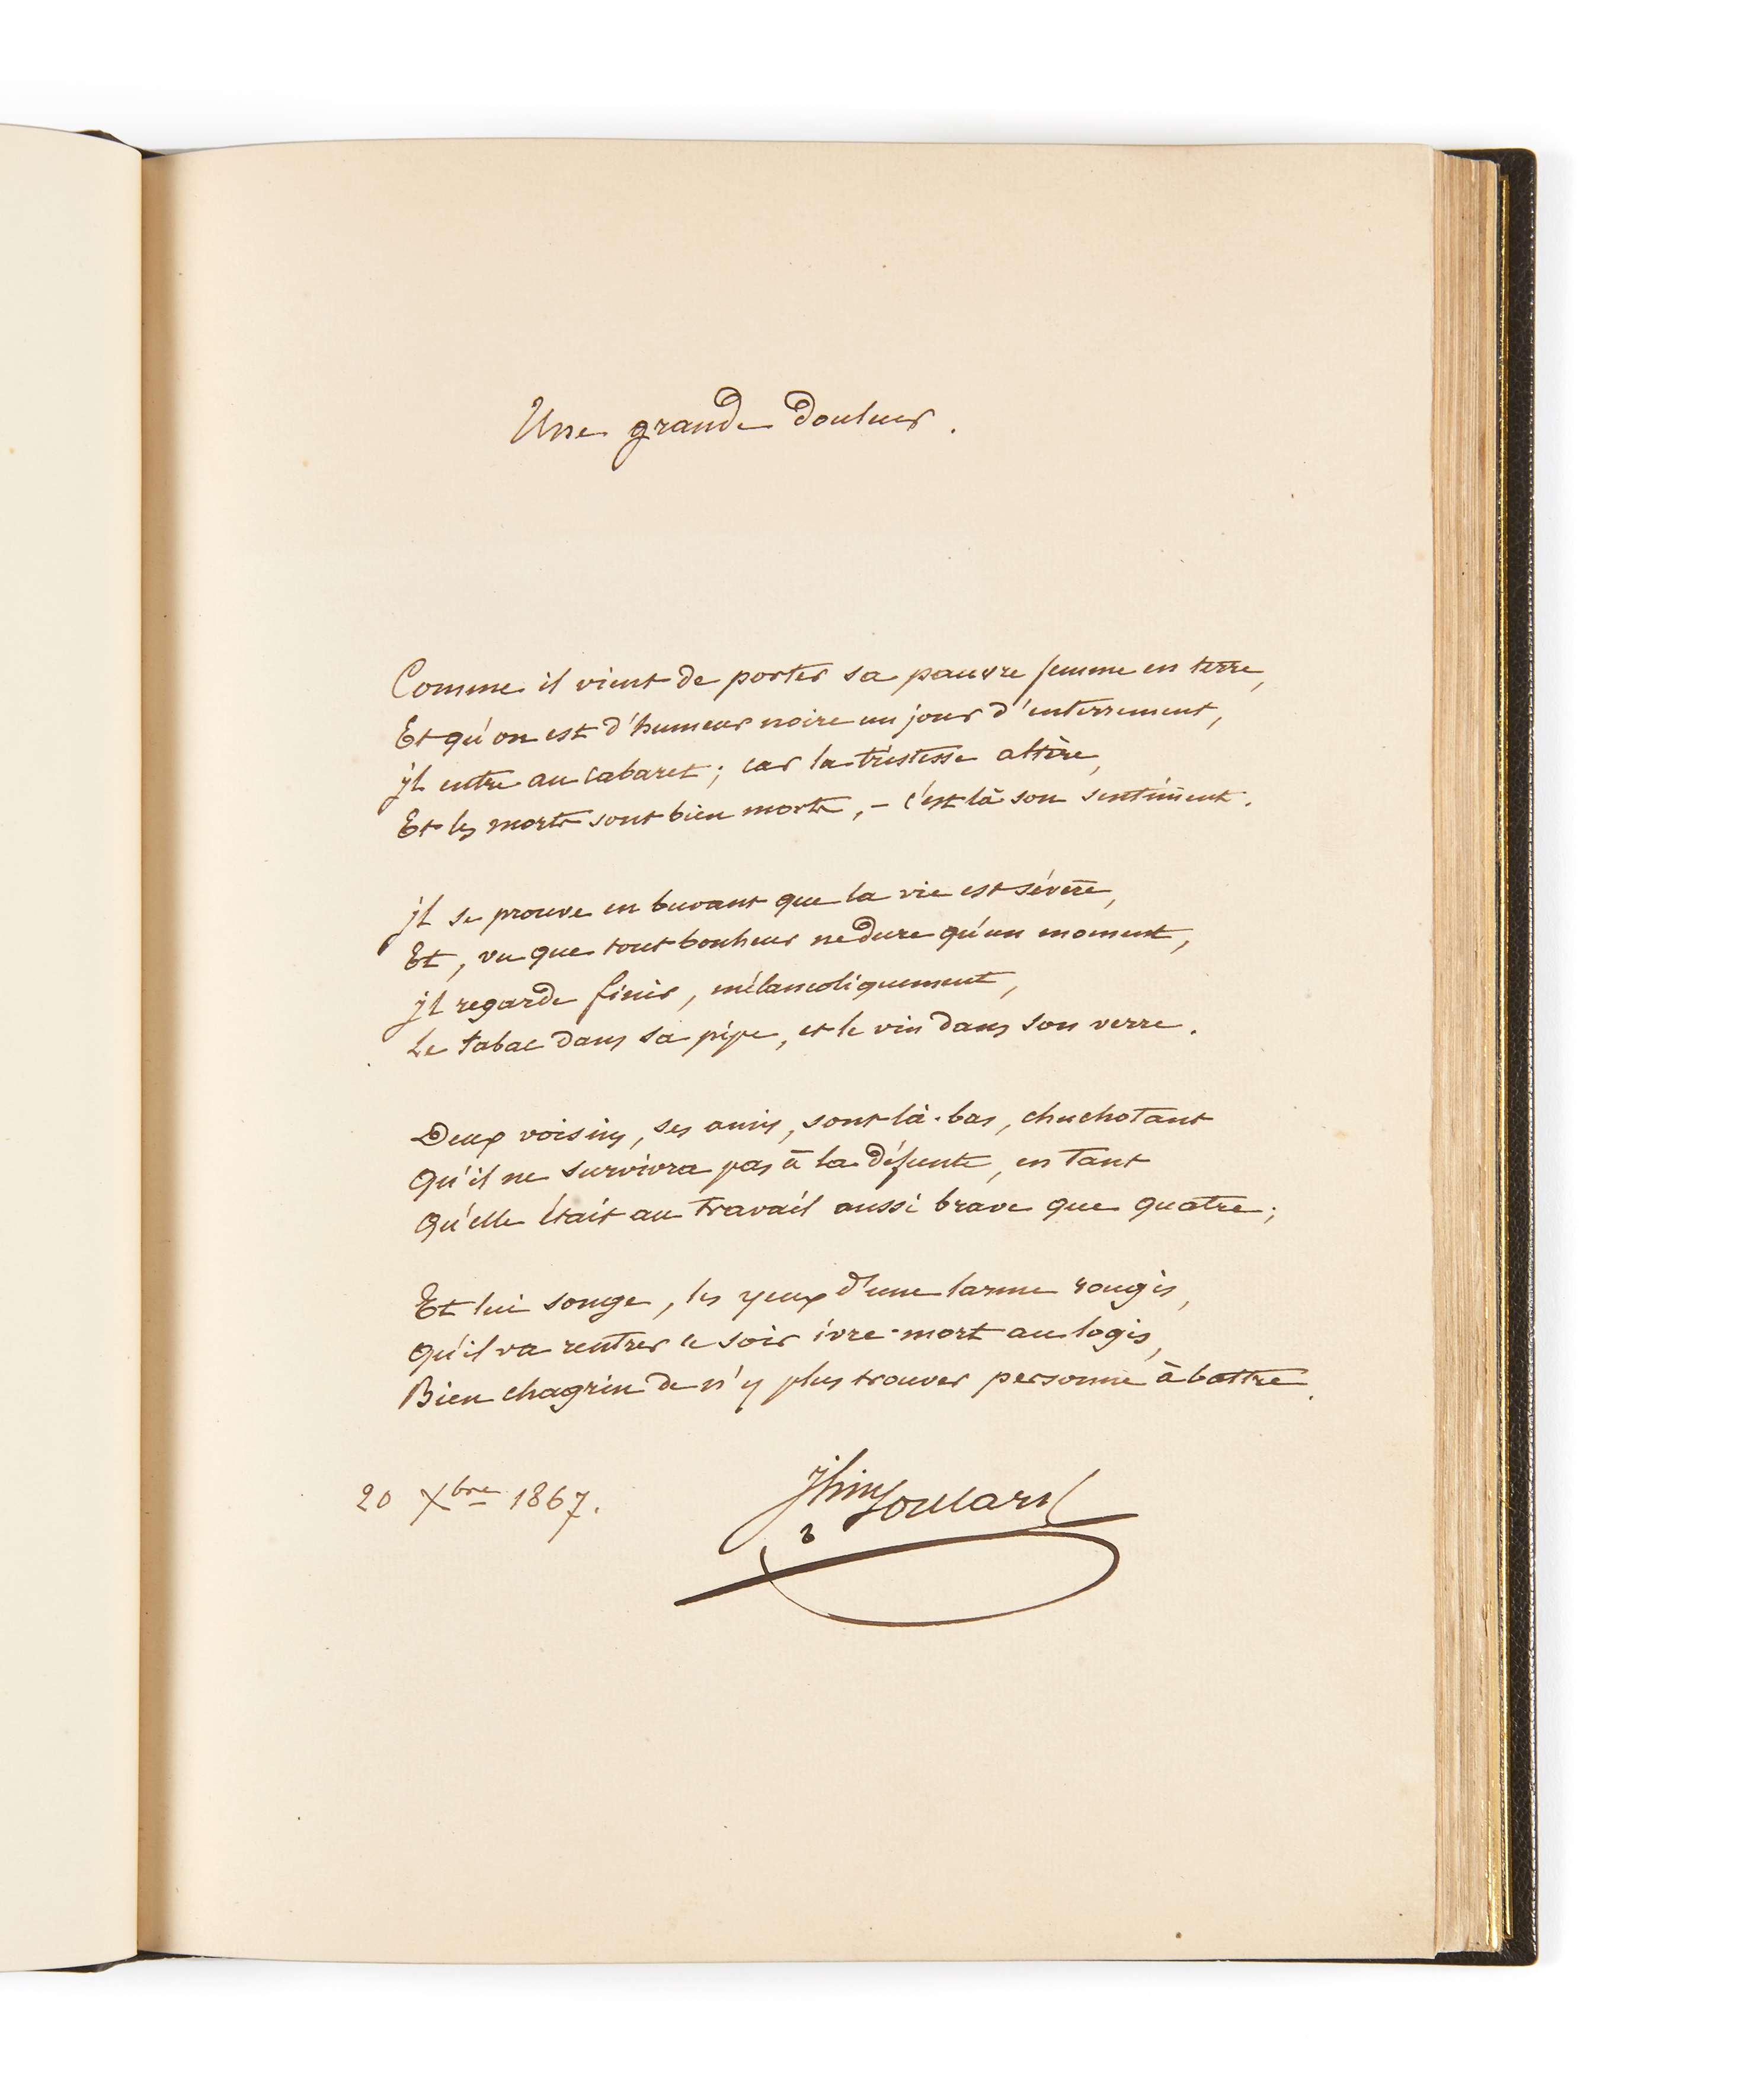 Une grande douleur.
Comme il vient de porter sa pauvre femme en terre,
Et qu'on est d'humeur noire un jour d'enterrement,
jl entre au cabaret; car la tristesse altère,
Et les morts sont bien morts, – c'est là son sentiment.
jl se prouve en buvant que la vie est sévère,
Et, vu que tout bonheur ne dure qu'un moment,
jl regarde finir, mélancoliquement,
Le tabac dans sa pipe, et le vin dans son verre.
Deux voisins, ses amis, sont là-bas, chuchotant
Qu'il ne survivra pas à la défunte, en tant
Qu'elle était au travail aussi brave que quatre;
Et lui songe, les yeux d'une larme rougis,
Qu'il va rentrer ce soir ivre-mort au logis,
Bien chagrin de n'y plus trouver personne à battre.
20 Xbre 1867. Jhin Soulary